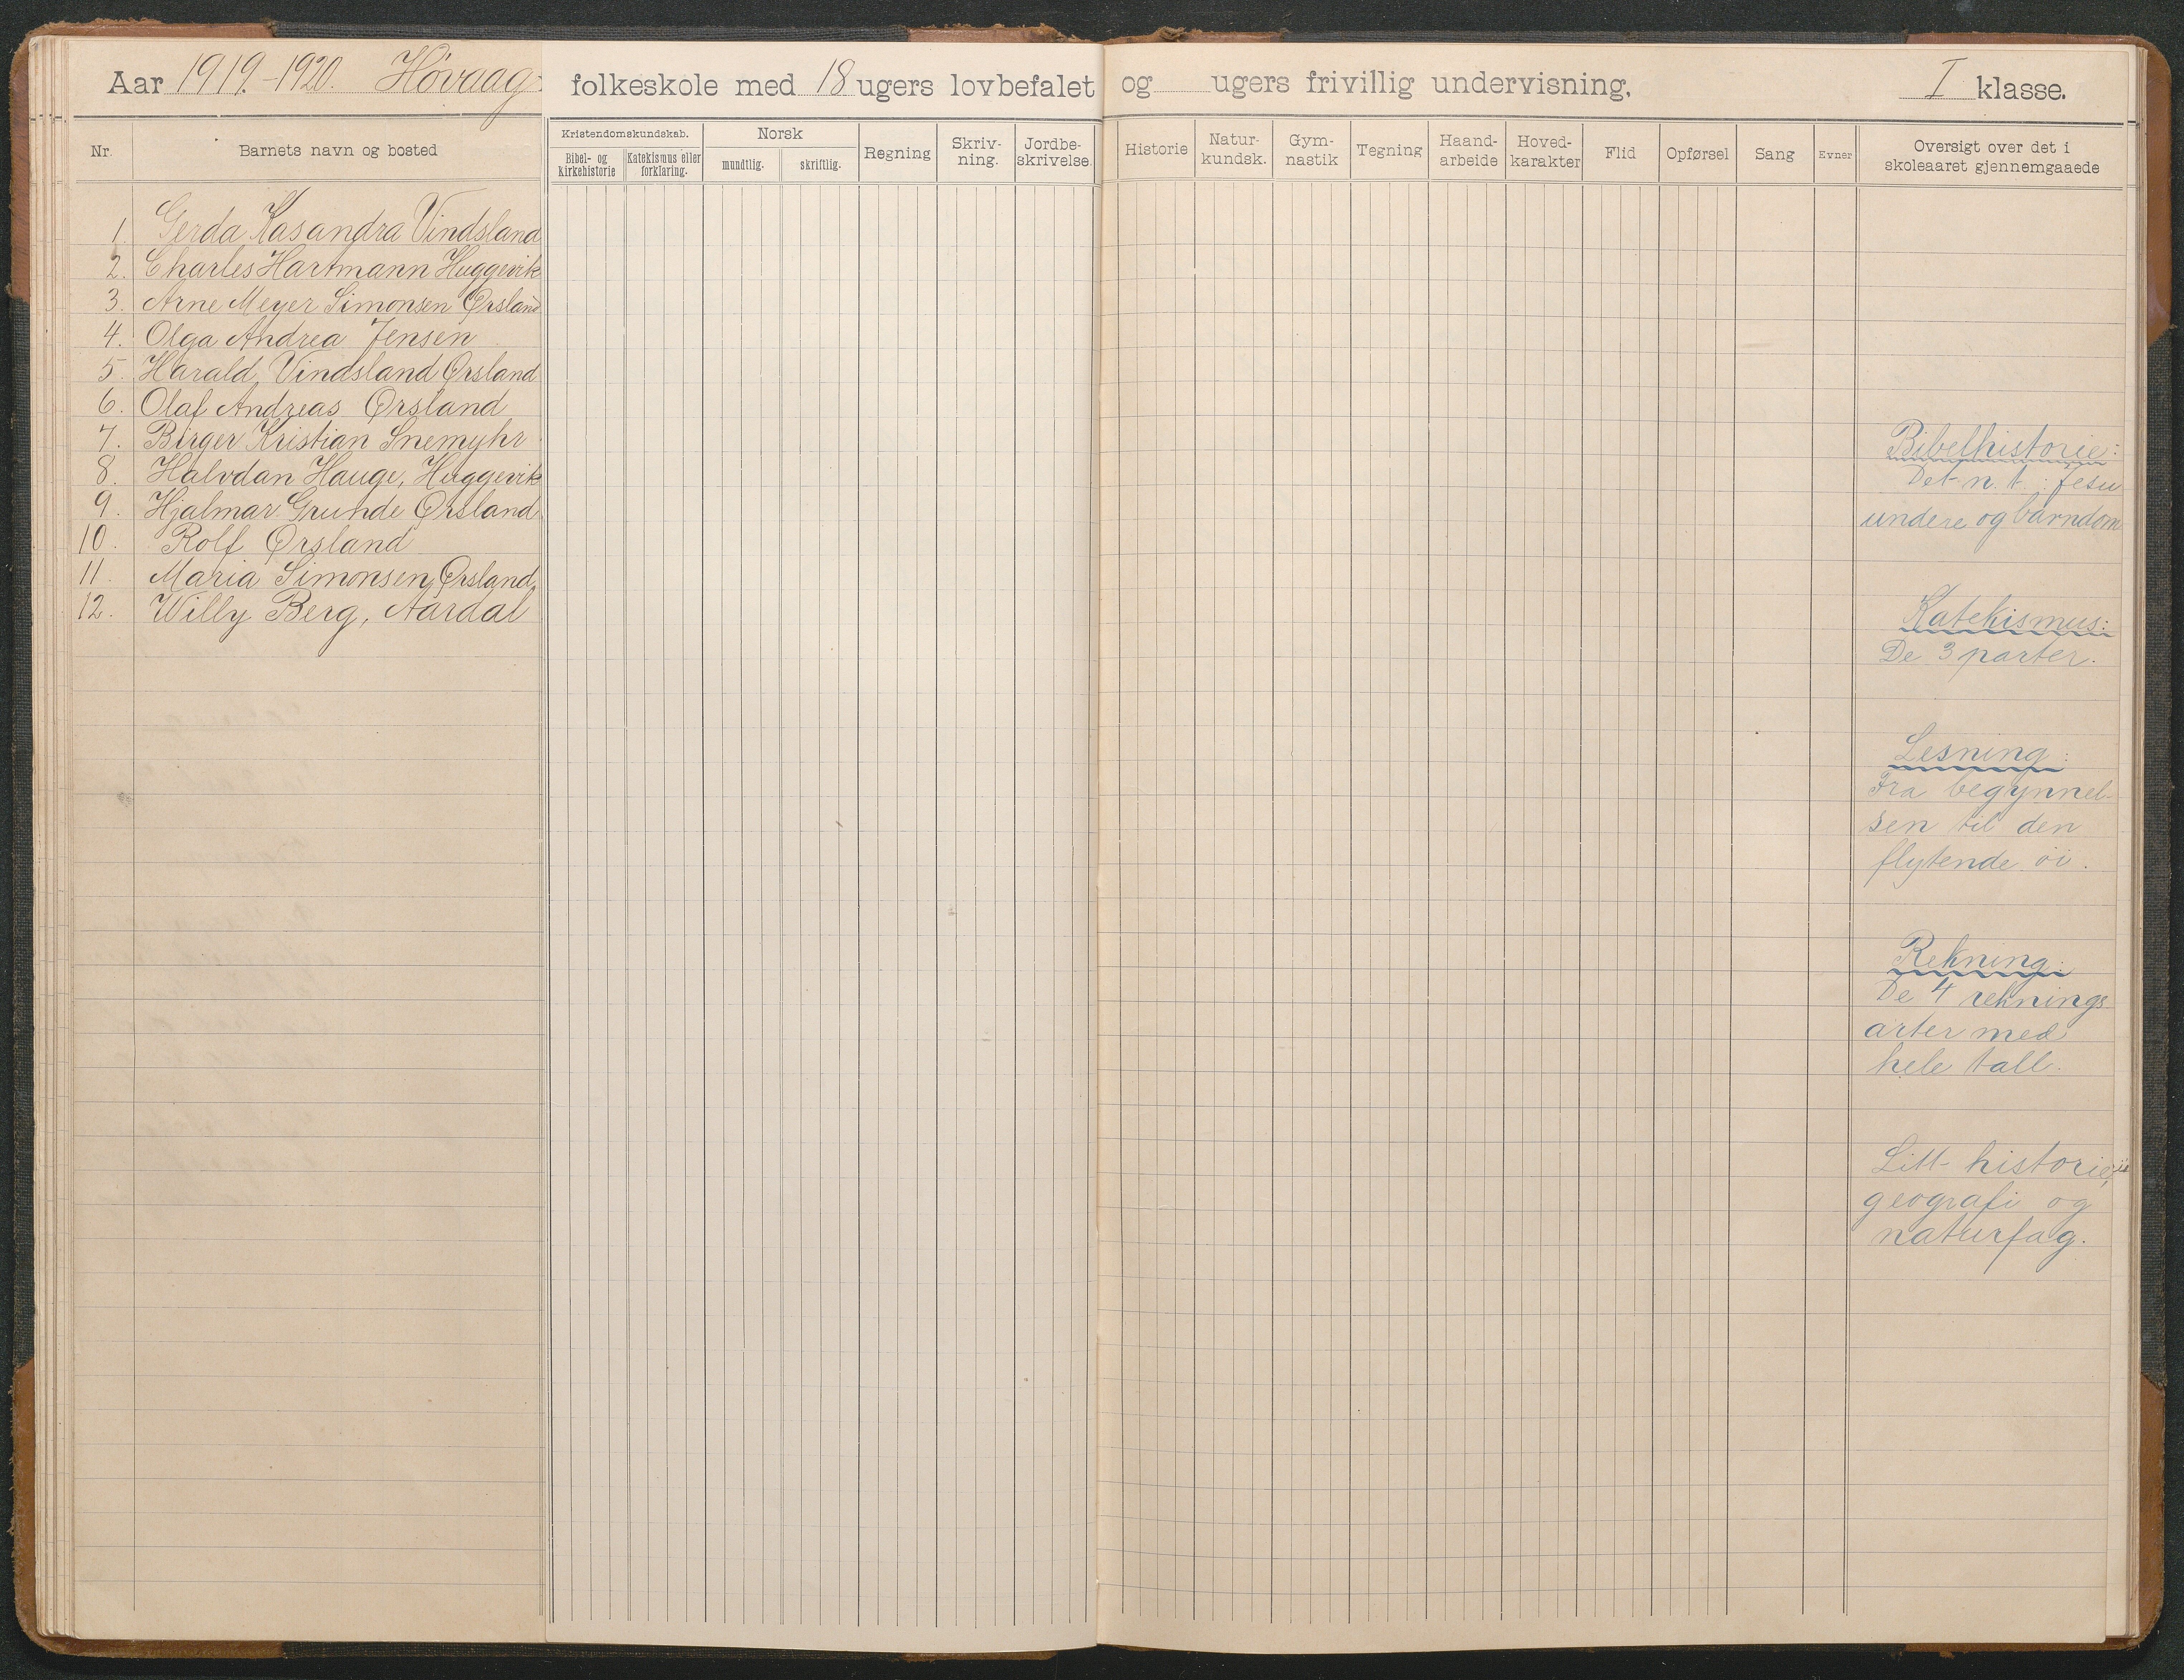 Aar 1919.-1920. Høvaag folkeskole med 18 ugers lovbefalet og ugers frivillig undervisning, I klasse.
Nr. Barnets navn og bosted
Kristendomskundskab. Norsk Regning Skriv- Jordbe- Historie Natur- Gym- Tegning Haand- Hoved- Flid Opførsel Sang Evner Oversigt over det i
Bibel- og Katekismus eller mundtlig. skriftlig. ning. skrivelse. kundsk. nastik arbeide karakter skoleaaret gjennemgaaede
kirkehistorie forklaring.
1. Gerda Kasandra Vindsland
2. Charles Hartmann Huggevik
3. Arne Meyer Simonsen Ørsland
4. Olga Andrea Jensen
5. Harald Vindsland Ørsland
6. Olaf Andreas Ørsland
7. Birger Kristian Snemyhr
8. Halvdan Hauge, Huggevik
9. Hjalmar Grunde Ørsland
10. Rolf Ørsland
11. Maria Simonsen, Ørsland,
12. Willy Berg, Aardal
Bibelhistorie:
Det n. t.: Jesu
undere og barndom
Katekismus:
De 3 parter.
Lesning:
Fra begynnel-
sen til den
flytende öi.
Rekning:
De 4 reknings
arter med
hele tall.
Litt historie,
geografi og
naturfag.